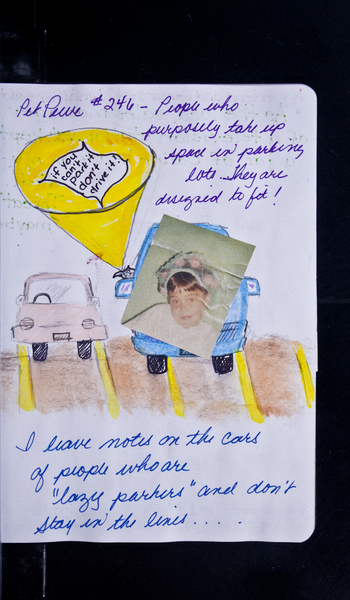 Pet Peeve #246 - People who
purposely take up
space in parking
lots. They are
designed to fit!
if you
can't
park it
don't
drive it!!
I leave notes on the cars
of people who are
"lazy parkers" and don't
stay in the lines.....